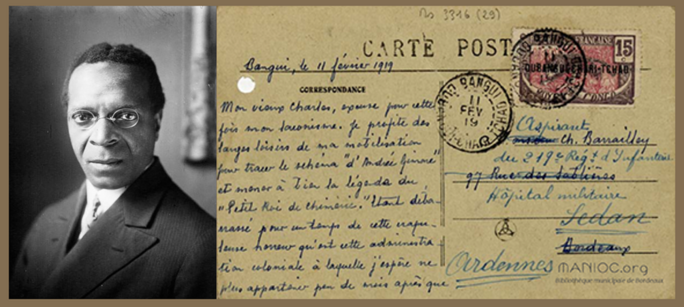 Ms 3316 (29)
CARTE POST
Bangui, le 11 février 1919
CORRESPONDANCE
Mon vieux Charles, excuse pour cette
fois mon laconisme. Je profite des
longs loisirs de ma
pour tracer le schéma "d'André
et mener à bien la légende du
"Petit Roi de Chimérie". Étant débar-
rassé pour un temps de cette crapu-
leuse horreur qu'est cette administra-
tion coloniale à laquelle j'espère ne
plus appartenir peu de mois après que
15
OUBANGUI-CHARI-TCHAD
CONGO
BANGUI
11
FEV
19
Aspirant
Ch. Barrailley
du 219e Régt d'Infanterie
97 Rue des Sablières
Hôpital militaire
Sedan
Bordeaux
Ardennes
MANIOC.org
bibliothèque municipale de bordeaux